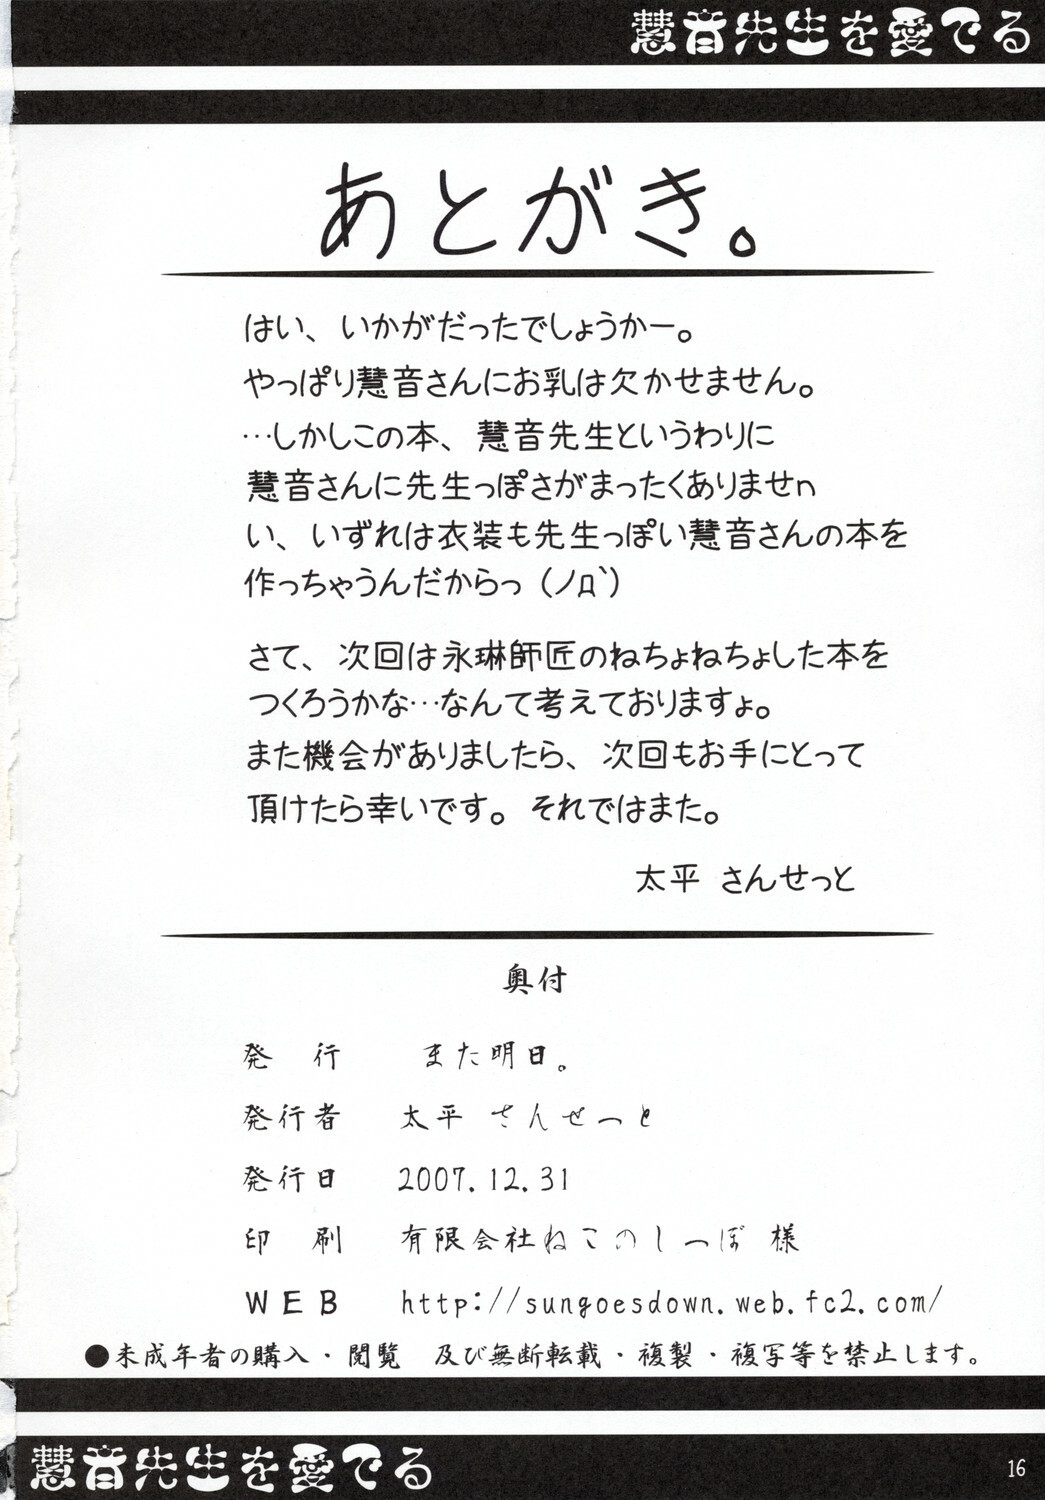 慧音先生を愛でる
あとがき。
はい、いかがだったでしょうかー。
やっぱり慧音さんにお乳は欠かせません。
…しかしこの本、慧音先生というわりに
慧音さんに先生っぽさがまったくありませn
い、いずれは衣装も先生っぽい慧音さんの本を
作っちゃうんだからっ（ノд`）
さて、次回は永琳師匠のねちょねちょした本を
つくろうかな…なんて考えておりますょ。
また機会がありましたら、次回もお手にとって
頂けたら幸いです。それではまた。
太平 さんせっと
奥付
発　行　　また明日。
発行者　太平 さんせっと
発行日　2007.12.31
印　刷　有限会社ねこのしっぽ 様
WEB　http://sungoesdown.web.fc2.com/
●未成年者の購入・閲覧　及び無断転載・複製・複写等を禁止します。
慧音先生を愛でる
16